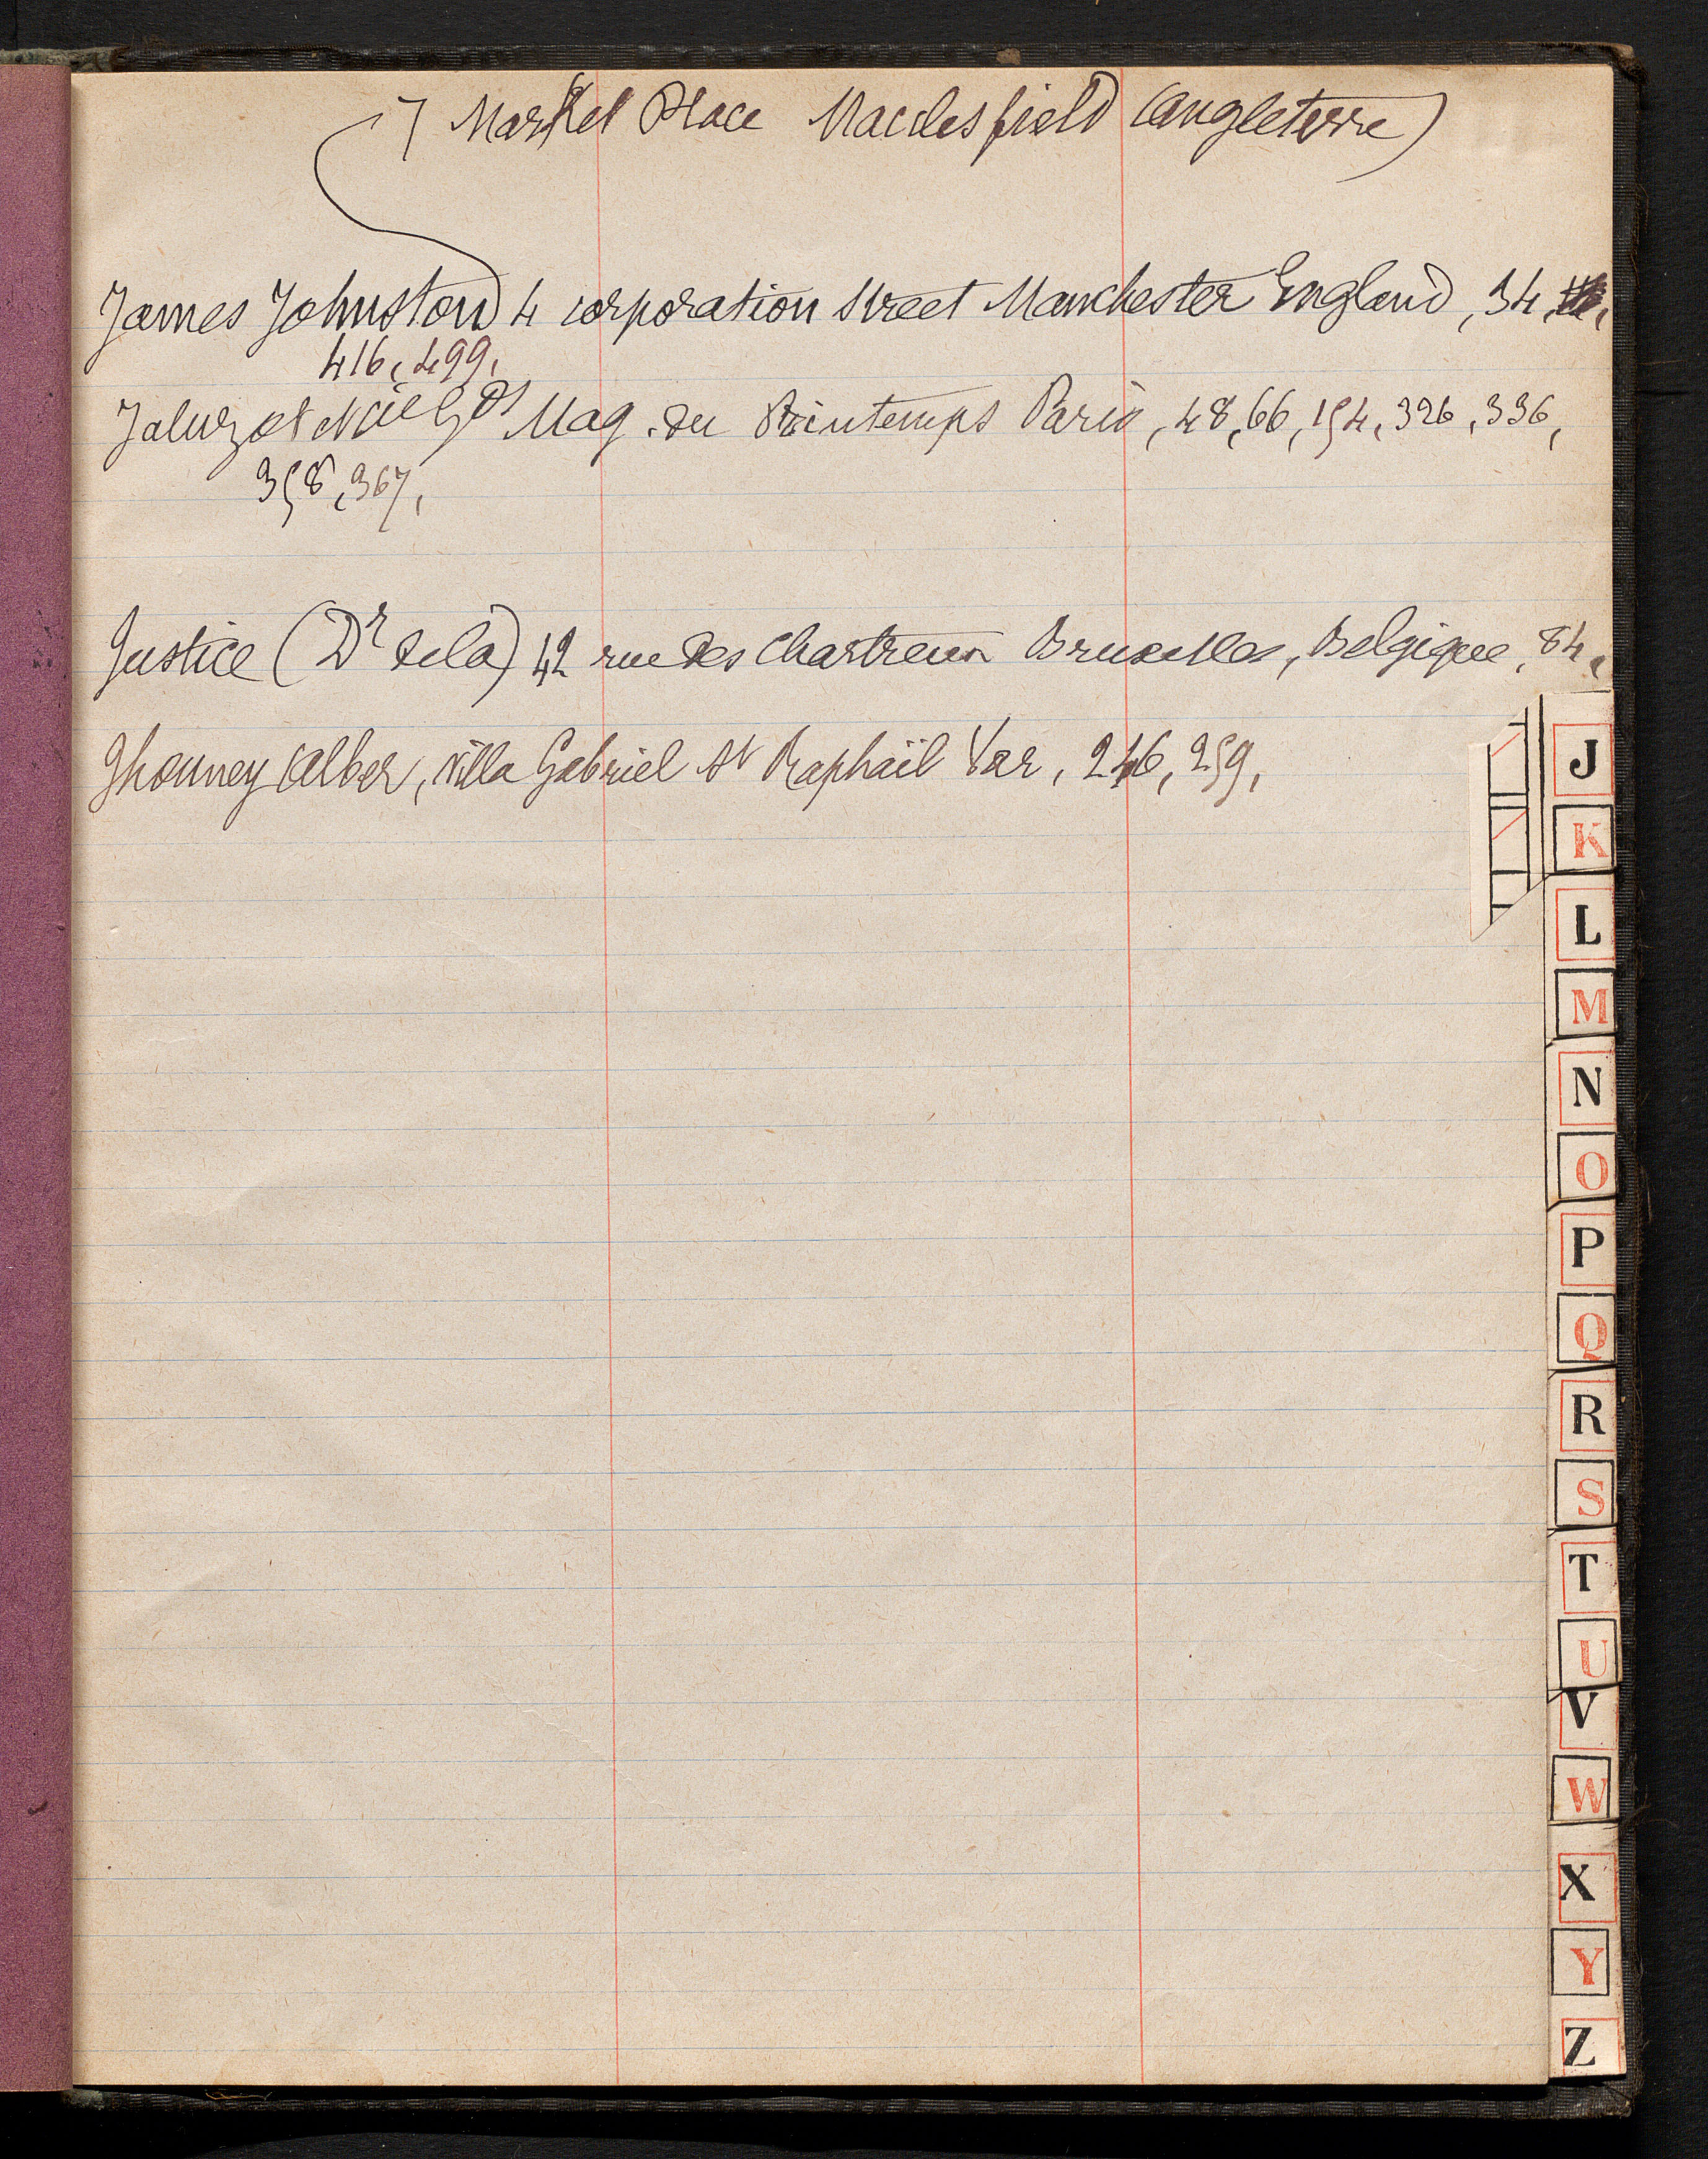 7 Market Place Macclesfield (Angleterre)
James Johnston 4 corporation Street Manchester England, 34,
416, 499,
Jaluzot et Cie Gds Mag. du Printemps Paris, 48, 66, 154, 326, 336,
358, 367,
Justice (Dr de la) 42 rue des Chartreux Bruxelles, Belgique, 84,
Jhouney Alber, villa Gabriel St Raphaël Var, 246, 259,
J
K
L
M
N
O
P
Q
R
S
T
U
V
W
X
Y
Z